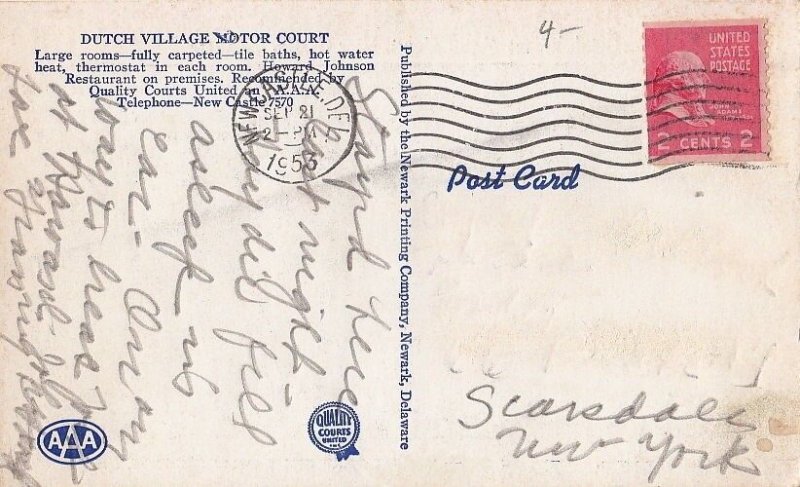 DUTCH VILLAGE MOTOR COURT
Large rooms—fully carpeted—tile baths, hot water
heat, thermostat in each room. Howard Johnson
Restaurant on premises. Recommended by
Quality Courts United an A.A.A.
Telephone—New Castle 7570
Stayd here
last night
Lady dit fies
asleep in
car - On way
to
at Hawaii
Published by the Newark Printing Company, Newark, Delaware
NEW CASTLE, DEL.
SEP 21
2 - PM
1953
4-
UNITED
STATES
POSTAGE
ADAMS
2 CENTS 2
Post Card
Scarsdale
New York
AAA
QUALITY
COURTS
UNITED
INC